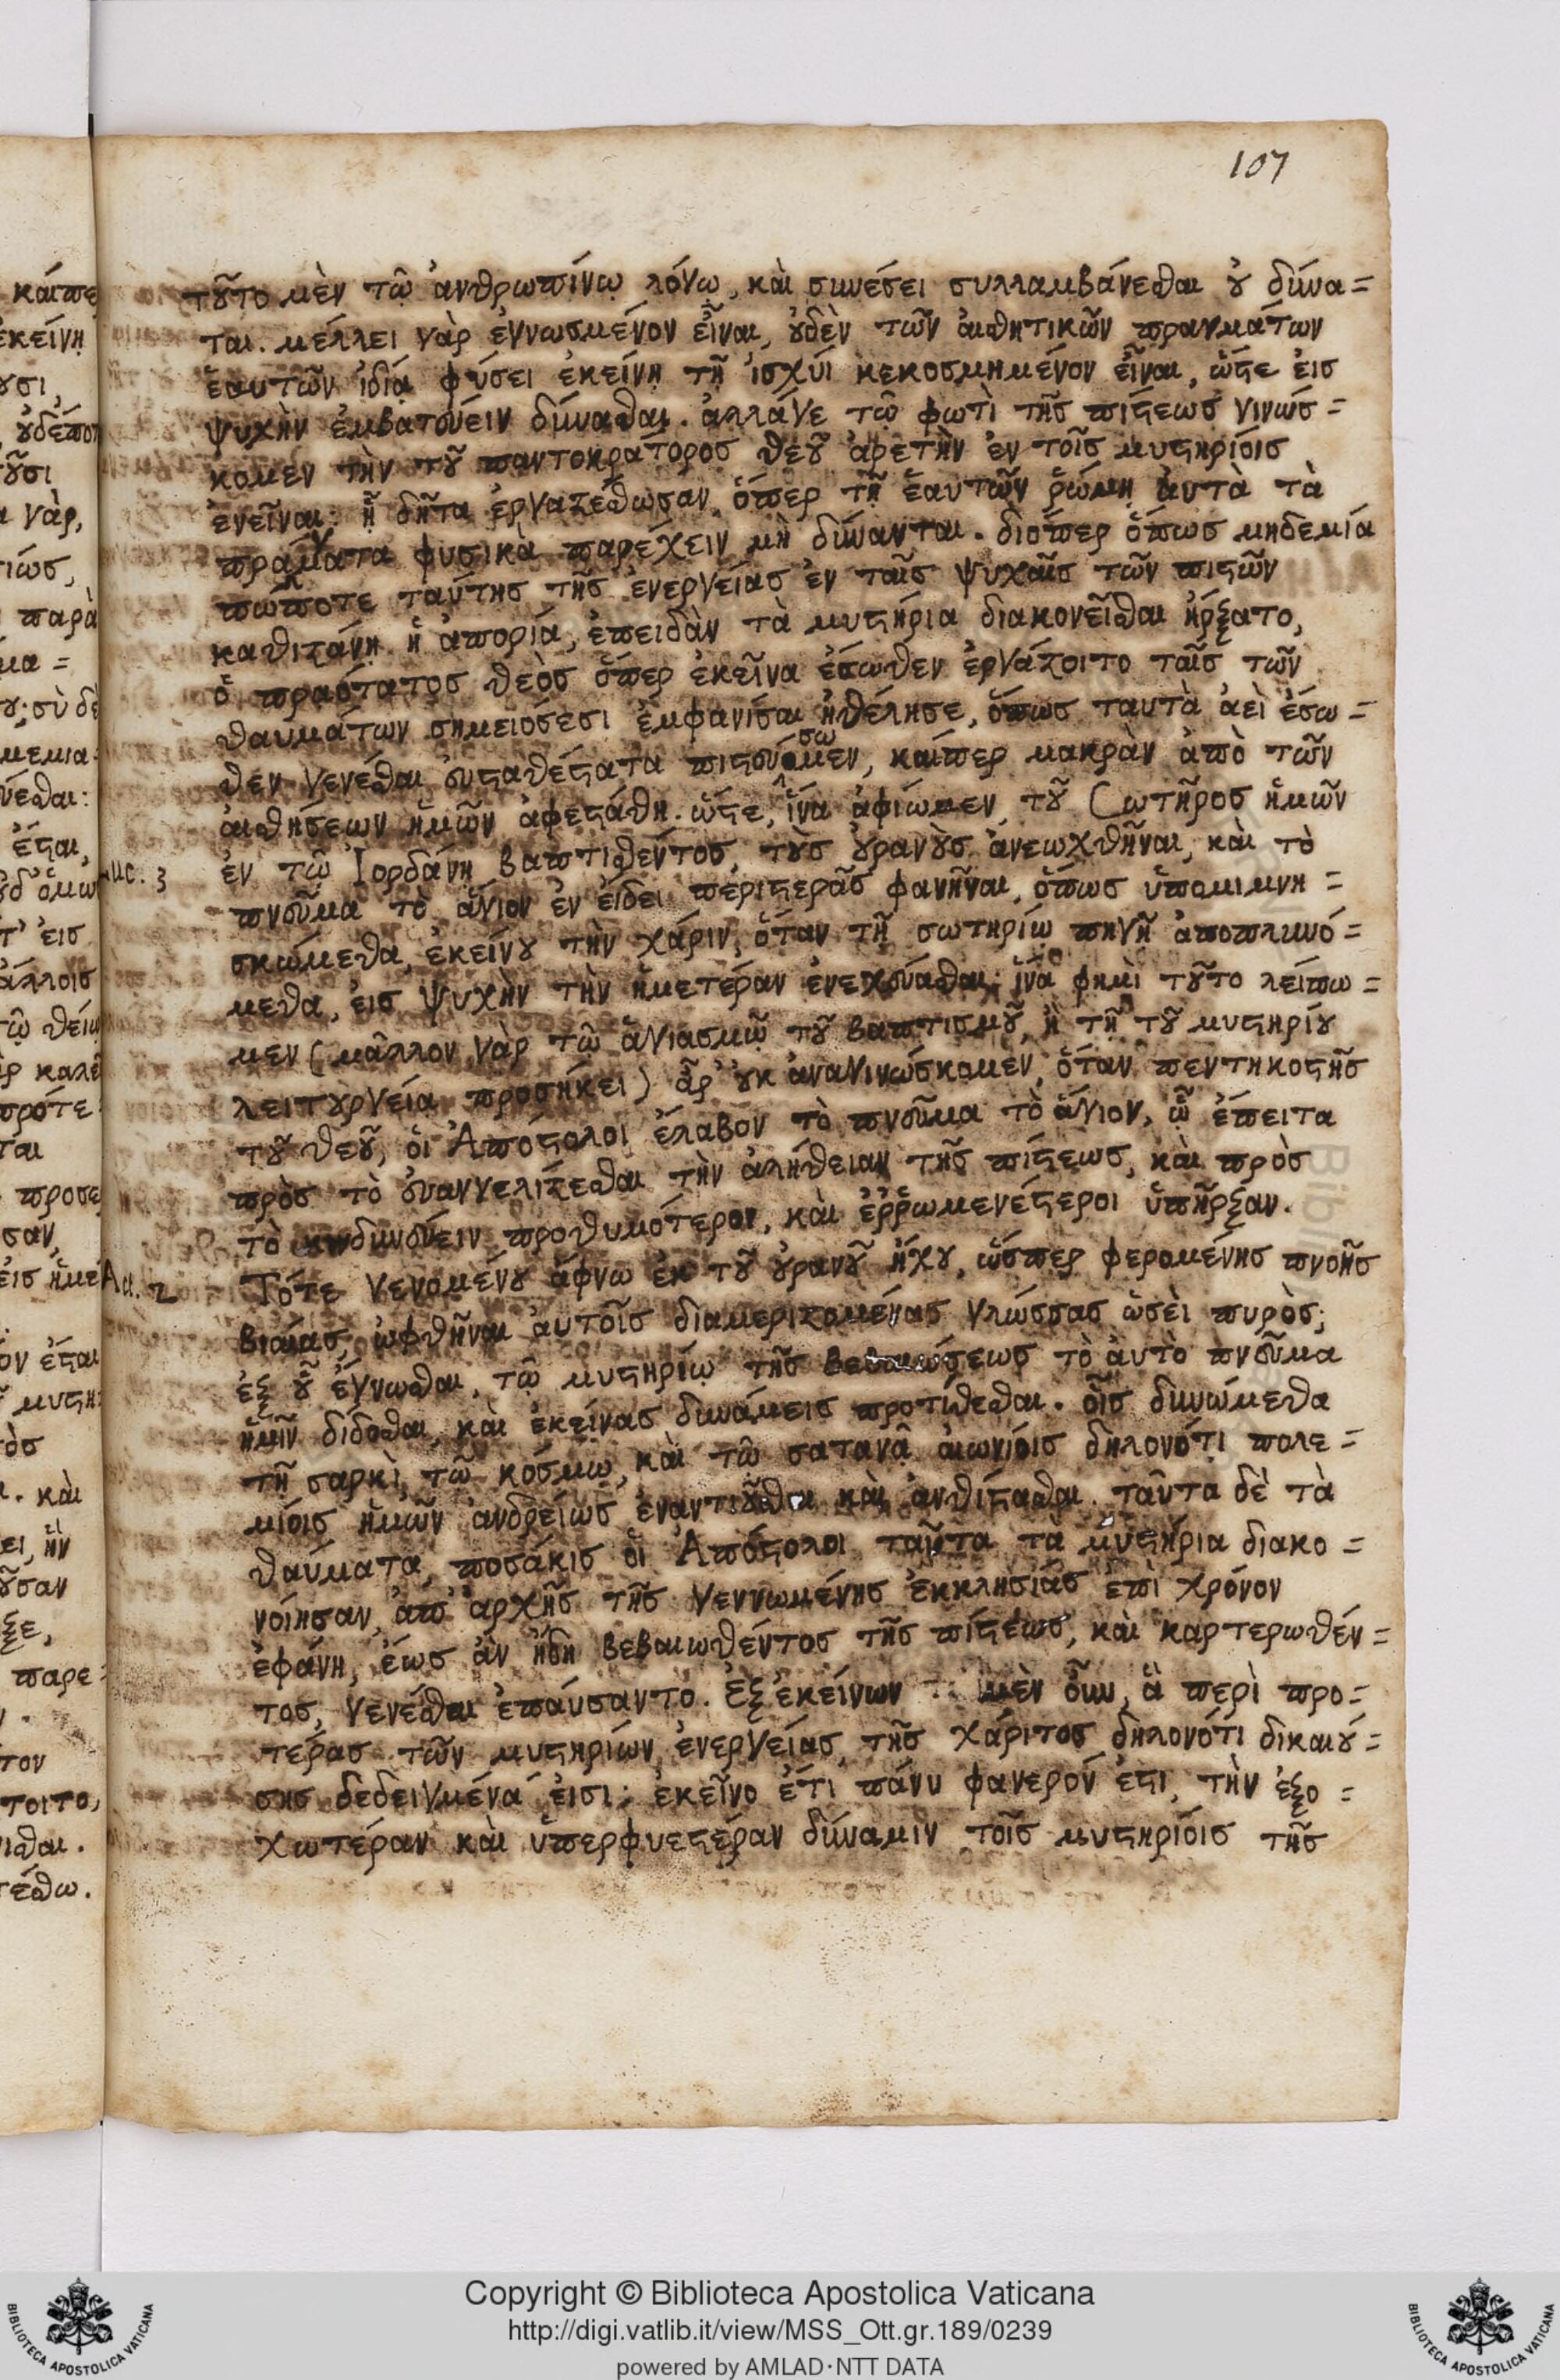 107
τοῦτο μὲν τῷ ἀνθρωπίνῳ λόγῳ, καὶ συνέσει συλλαμβάνεσθαι οὐ δύνα=
ται. μέλλει γὰρ ἐγνωσμένον εἶναι, οὐδὲν τῶν αἰσθητικῶν πραγμάτων
ἑαυτῶν ἰδίᾳ φύσει ἐκείνῃ τῇ ἰσχύϊ κεκοσμημένον εἶναι, ὥστε εἰς
ψυχὴν ἐμβατεύειν δύνασθαι. ἀλλάγε τῷ φωτὶ τῆς πίστεως γινώσ=
κομεν τὴν τοῦ παντοκράτορος θεοῦ ἀρετὴν ἐν τοῖς μυστηρίοις
ἐνεῖναι; ᾗ δῆτα ἐργαζέσθωσαν, ὅπερ τῇ ἑαυτῶν ῥώμῃ αὐτὰ τὰ
πράγματα φυσικὰ παρέχειν μὴ δύνανται. διόπερ ὅπως μηδεμία
πώποτε ταύτης τῆς ἐνεργείας ἐν ταῖς ψυχαῖς τῶν πιστῶν
καθιζάνῃ ἡ ἀπορία, ἐπειδὰν τὰ μυστήρια διακονεῖσθαι ἤρξατο,
ὁ πραότατος θεὸς ὅπερ ἐκεῖνα ἔσωθεν ἐργάζοιτο ταῖς τῶν
θαυμάτων σημειοσέσι ἐμφανίσαι ἠθέλησε, ὅπως ταυτὰ ἀεὶ ἔσω=
θεν γενέσθαι εὐσταθέστατα πιστεύσωμεν, καίπερ μακρὰν ἀπὸ τῶν
αἰσθήσεων ἡμῶν ἀφεστάθη. ὥστε, ἵνα ἀφίωμεν, τοῦ Σωτῆρος ἡμῶν
ἐν τῷ Ἰορδάνῃ βαπτισθέντος, τοὺς οὐρανοὺς ἀνεωχθῆναι, καὶ τὸ
πνεῦμα τὸ ἅγιον ἐν εἴδει περιστερᾶς φανῆναι, ὅπως ὑπομιμνη=
σκώμεθα, ἐκείνου τὴν χάριν, ὅταν τῇ σωτηρίῳ πηγῇ ἀποπλυνό=
μεθα, εἰς ψυχὴν τὴν ἡμετέραν ἐνεχεύασθαι; ἵνα φημὶ τοῦτο λείπω=
μεν (μᾶλλον γὰρ τῷ ἁγιασμῷ τοῦ βαπτισμοῦ, ἢ τῇ τοῦ μυστηρίου
λειτουργείᾳ προσήκει) ἆρ' οὐκ ἀναγινώσκομεν, ὅταν πεντηκοστῆς
τοῦ θεοῦ, οἱ Ἀπόστολοι ἔλαβον τὸ πνεῦμα τὸ ἅγιον, ᾧ ἔπειτα
πρὸς τὸ εὐαγγελίζεσθαι τὴν ἀλήθειαν τῆς πίστεως, καὶ πρὸς
τὸ κινδυνεύειν προθυμότεροι, καὶ ἐῤῥωμενέστεροι ὑπῆρξαν.
Τότε γενομένου ἄφνω ἐκ τοῦ οὐρανοῦ ἤχου, ὥσπερ φερομένης πνοῆς
βιαίας, ὠφθῆναι αὐτοῖς διαμεριζομένας γλώσσας ὡσεὶ πυρός;
ἐξ οὗ ἔγνωσθαι, τῷ μυστηρίῳ τῆς βεβαιώσεως τὸ αὐτὸ πνεῦμα
ἡμῖν δίδοσθαι, καὶ ἐκείνας δυνάμεις προτίθεσθαι. οἷς δυνώμεθα
τῇ σαρκὶ, τῷ κόσμῳ, καὶ τῷ σατανᾷ αἰωνίοις δηλονότι πολε=
μίοις ἡμῶν ἀνδρείως ἐναντιοῦσθαι καὶ ἀνθίστασθαι. ταῦτα δὲ τὰ
θαύματα, ποσάκις οἱ Ἀπόστολοι ταῦτα τὰ μυστήρια διακο=
νοίησαν, ἀπ' ἀρχῆς τῆς γεννωμένης ἐκκλησίας ἐπὶ χρόνον
ἐφάνη, ἕως ἂν ἤδη βεβαιωθέντος τῆς πίστεως, καὶ καρτερωθέν=
τος, γενέσθαι ἐπαύσαντο. Ἐξ ἐκείνων μὲν οὖν, ἃ περὶ προ=
τέρας τῶν μυστηρίων ἐνεργείας, τῆς χάριτος δηλονότι δικαιού=
σης δεδειγμένα εἰσι; ἐκεῖνο ἔτι πάνυ φανερόν ἐστι, τὴν ἐξο=
χωτέραν καὶ ὑπερφυεστέραν δύναμιν τοῖς μυστηρίοις τῆς
Act. 2
Copyright © Biblioteca Apostolica Vaticana
http://digi.vatlib.it/view/MSS_Ott.gr.189/0239
powered by AMLAD·NTT DATA
BIBLIOTECA APOSTOLICA VATICANA
BIBLIOTECA APOSTOLICA VATICANA